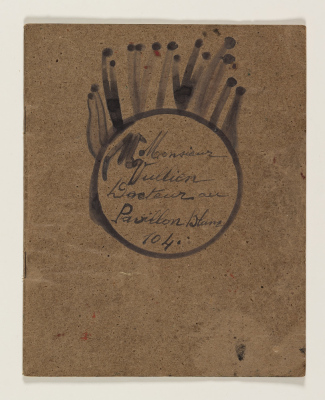 Monsieur
Docteur au
Pavillon Blanc
104.